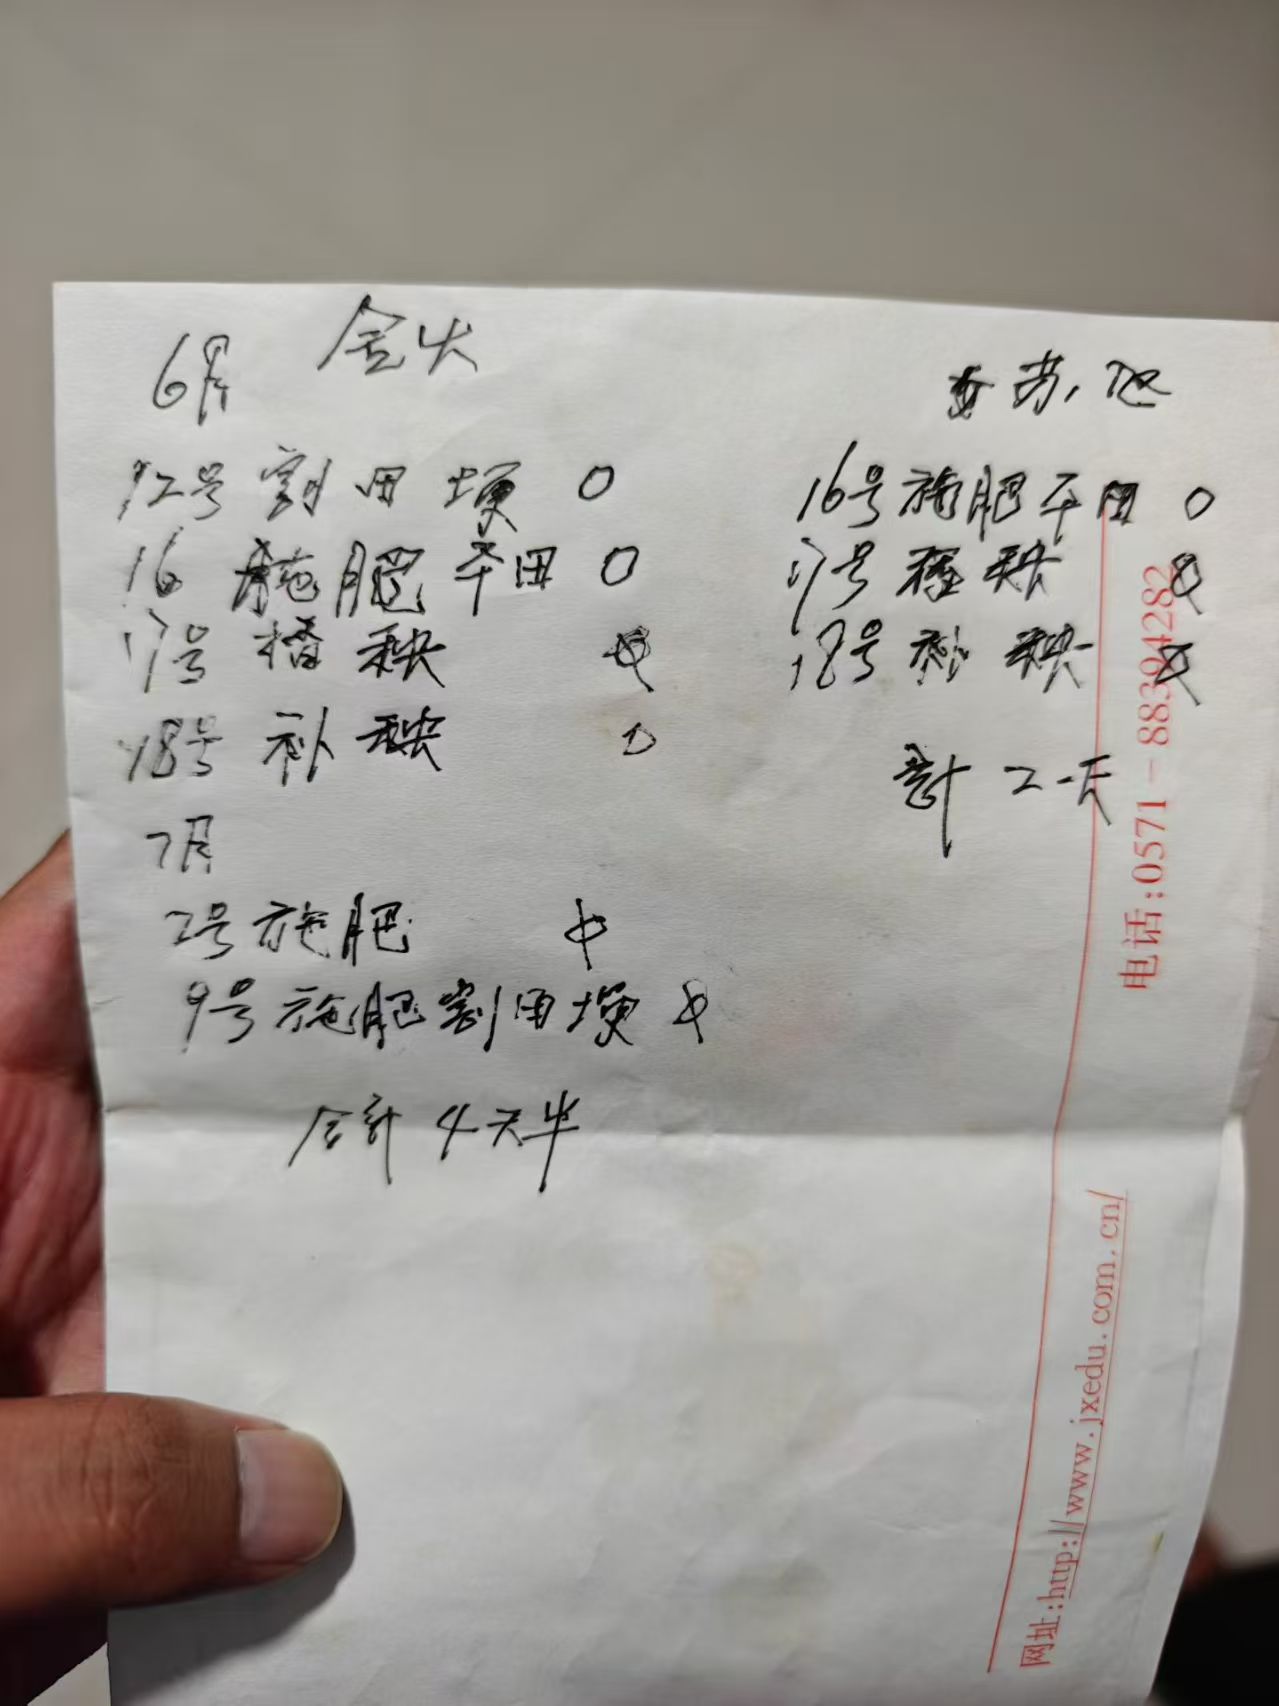 6月 金火
12号 割田埂 O
16 施肥平田 O
17号 插秧
18号 补秧
7月
2号 施肥
9号 施肥割田埂
合計 4天半
16号施肥平田 O
17号 種秧
18号 补秧
計 2天
电话:0571-88394282
网址:http://www.jxedu.com.cn/